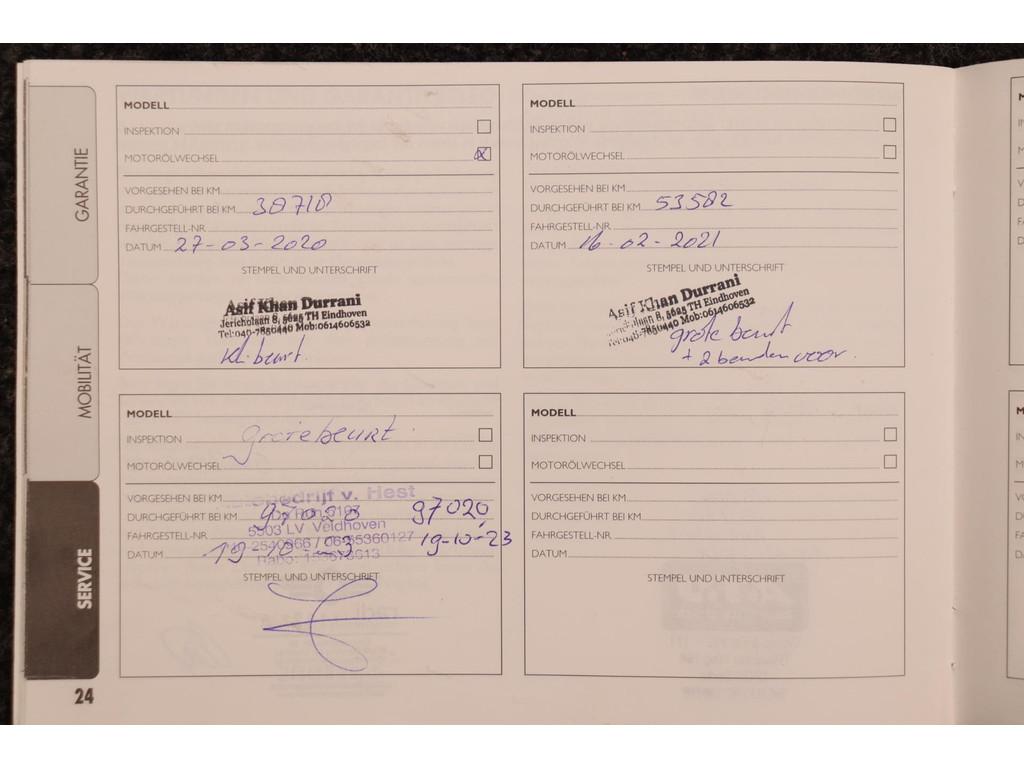 GARANTIE
MOBILITÄT
SERVICE
24
MODELL
INSPEKTION
MOTORÖLWECHSEL
VORGESEHEN BEI KM
DURCHGEFÜHRT BEI KM 38718
FAHRGESTELL-NR.
DATUM 27-03-2020
STEMPEL UND UNTERSCHRIFT
Asif Khan Durrani
Jericholaan 8, 5625 TH Eindhoven
Tel:040-7850440 Mob:0614606532
Kl. beurt.
MODELL
INSPEKTION
MOTORÖLWECHSEL
VORGESEHEN BEI KM
DURCHGEFÜHRT BEI KM 53582
FAHRGESTELL-NR.
DATUM 16-02-2021
STEMPEL UND UNTERSCHRIFT
Asif Khan Durrani
Jericholaan 8, 5625 TH Eindhoven
Tel:040-7850440 Mob:0614606532
grote beurt
+ 2 banden voor.
MODELL
INSPEKTION grote beurt
MOTORÖLWECHSEL
VORGESEHEN BEI KM
v. Hest
DURCHGEFÜHRT BEI KM 97020 97020
5503 LV Veldhoven
FAHRGESTELL-NR.
DATUM 19-10-23 19-10-23
STEMPEL UND UNTERSCHRIFT
MODELL
INSPEKTION
MOTORÖLWECHSEL
VORGESEHEN BEI KM
DURCHGEFÜHRT BEI KM
FAHRGESTELL-NR.
DATUM
STEMPEL UND UNTERSCHRIFT